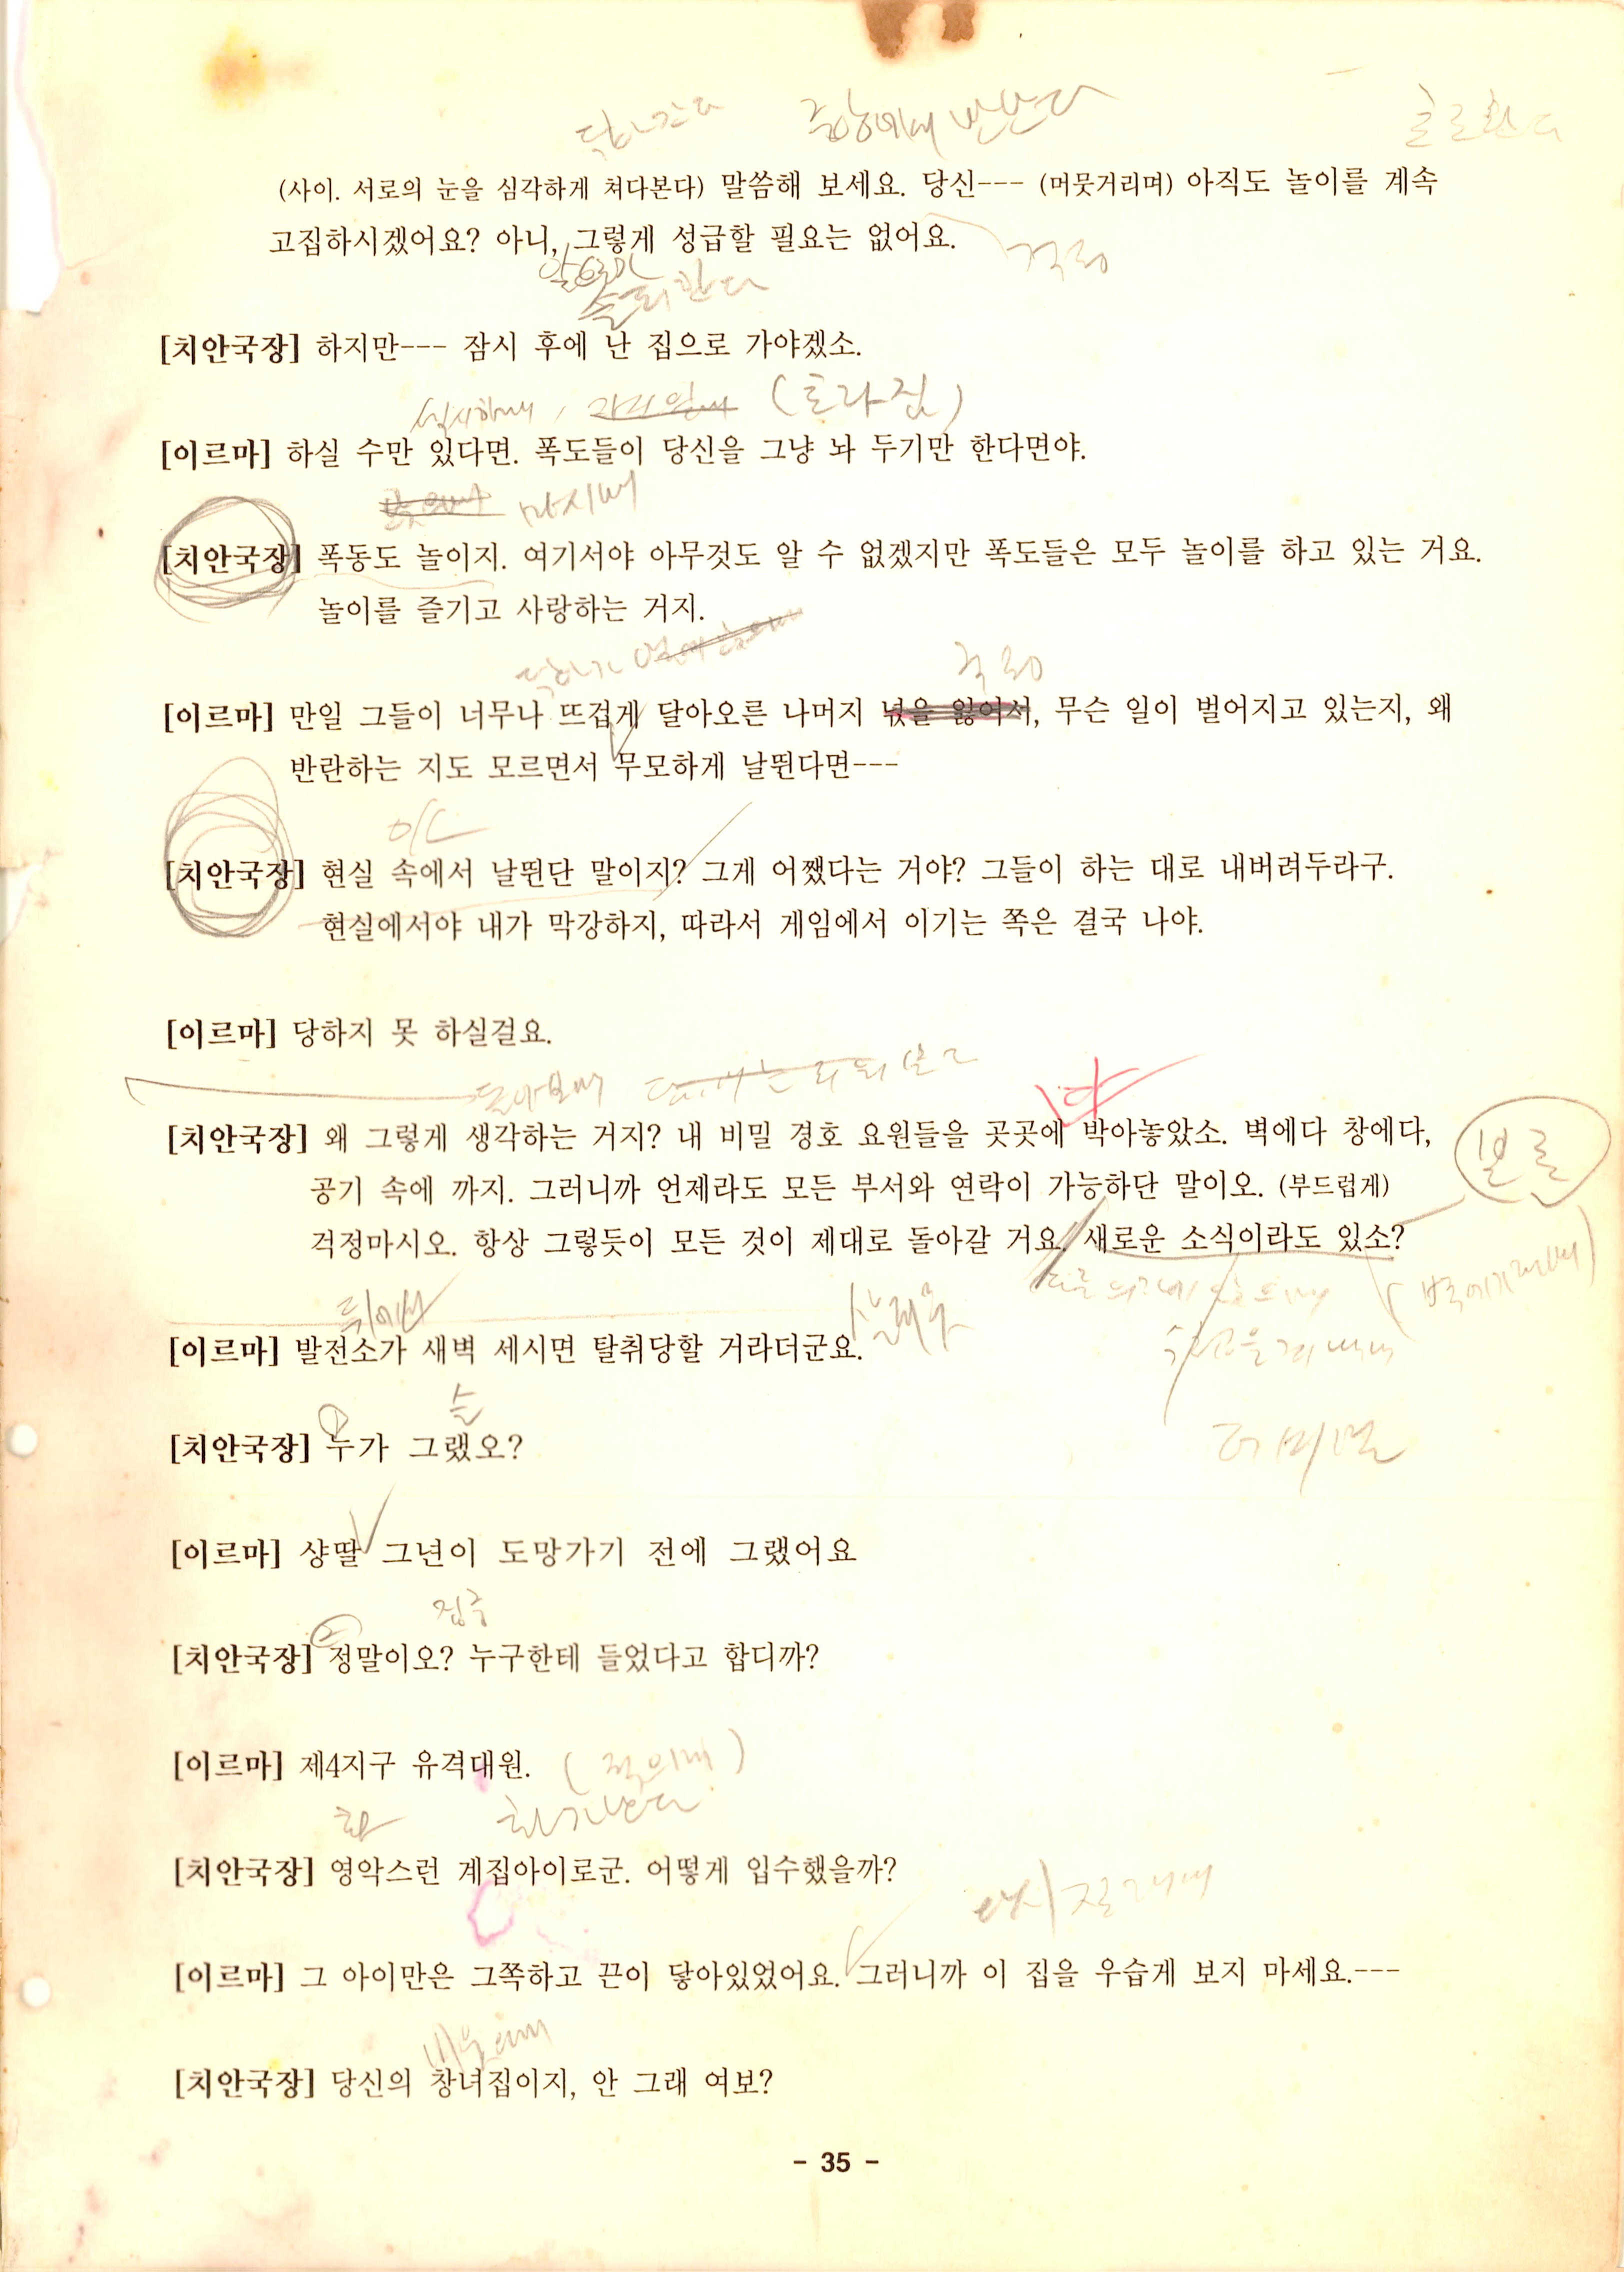 중앙에서 만난다
(사이. 서로의 눈을 심각하게 쳐다본다) 말씀해 보세요. 당신--- (머뭇거리며) 아직도 놀이를 계속
고집하시겠어요? 아니, 그렇게 성급할 필요는 없어요.
걱정
[치안국장] 하지만--- 잠시 후에 난 집으로 가야겠소.
[이르마] 하실 수만 있다면. 폭도들이 당신을 그냥 놔 두기만 한다면야.
마시며
[치안국장] 폭동도 놀이지. 여기서야 아무것도 알 수 없겠지만 폭도들은 모두 놀이를 하고 있는 거요.
놀이를 즐기고 사랑하는 거지.
걱정
[이르마] 만일 그들이 너무나 뜨겁게 달아오른 나머지 넋을 잃어서, 무슨 일이 벌어지고 있는지, 왜
반란하는 지도 모르면서 무모하게 날뛴다면---
[치안국장] 현실 속에서 날뛴단 말이지? 그게 어쨌다는 거야? 그들이 하는 대로 내버려두라구.
현실에서야 내가 막강하지, 따라서 게임에서 이기는 쪽은 결국 나야.
[이르마] 당하지 못 하실걸요.
돌아보며
[치안국장] 왜 그렇게 생각하는 거지? 내 비밀 경호 요원들을 곳곳에 박아놓았소. 벽에다 창에다,
공기 속에 까지. 그러니까 언제라도 모든 부서와 연락이 가능하단 말이오. (부드럽게)
걱정마시오. 항상 그렇듯이 모든 것이 제대로 돌아갈 거요. 새로운 소식이라도 있소?
[이르마] 발전소가 새벽 세시면 탈취당할 거라더군요.
[치안국장] 누가 그랬오?
[이르마] 샹딸 그년이 도망가기 전에 그랬어요
집중
[치안국장] 정말이오? 누구한테 들었다고 합디까?
[이르마] 제4지구 유격대원.
[치안국장] 영악스런 계집아이로군. 어떻게 입수했을까?
[이르마] 그 아이만은 그쪽하고 끈이 닿아있었어요. 그러니까 이 집을 우습게 보지 마세요.---
비웃으며
[치안국장] 당신의 창녀집이지, 안 그래 여보?
- 35 -